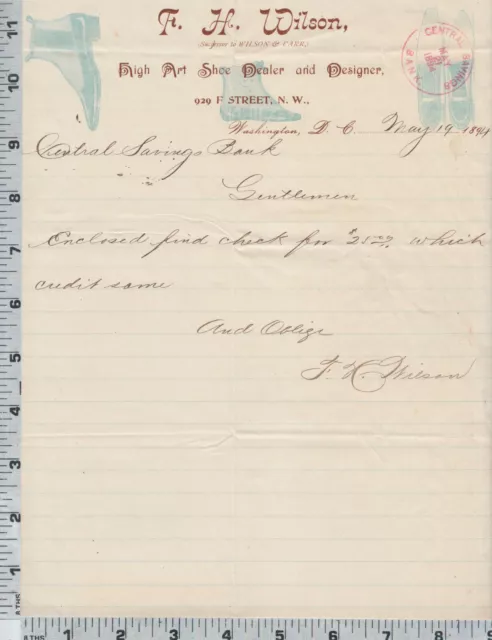 F. H. Wilson,
(Successor to WILSON & CARR)
High Art Shoe Dealer and Designer,
929 F STREET, N. W.,
CENTRAL SAVINGS BANK
MAY
1894
Washington, D. C. May 19 1894
Central Savings Bank
Gentlemen
Enclosed find check for $25.00 which
credit same
And Oblige
F. H. Wilson
11
10
9
8
7
6
5
4
3
2
1
8 THS
8 THS 1 2 3 4 5 6 7 8